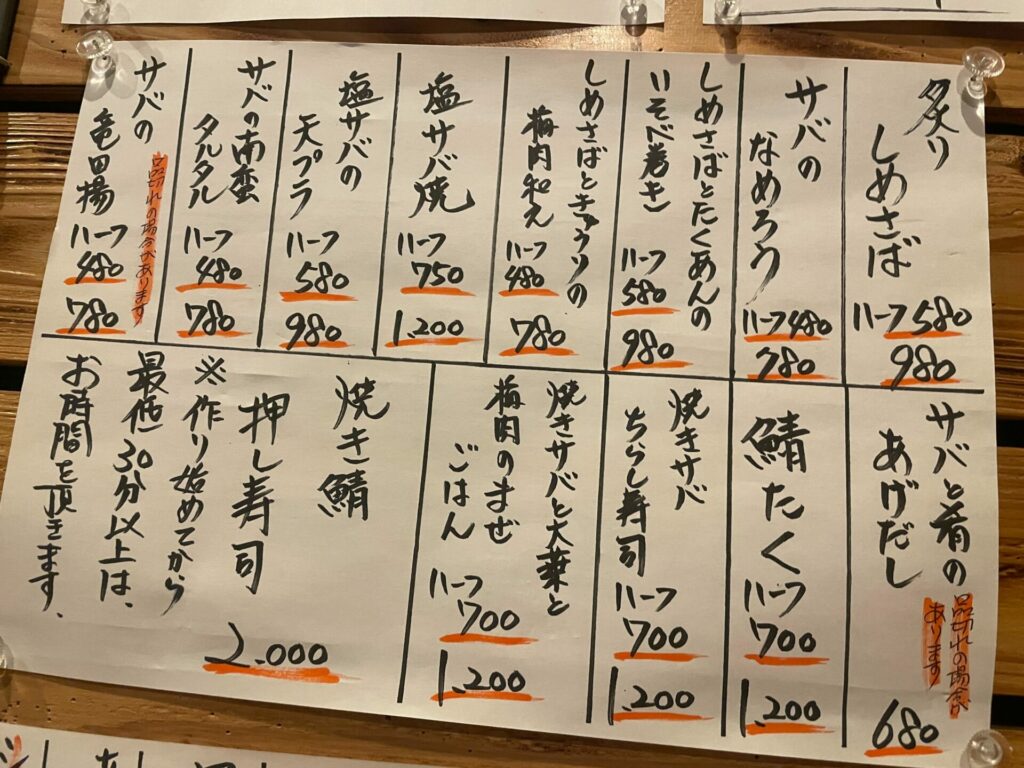 炙り
しめさば
ハーフ 580
980
サバの
なめろう
ハーフ 480
780
しめさばとたくあんの
いそべ巻き
ハーフ
580
980
しめさばときゅうりの
梅肉和え
ハーフ
480
780
塩サバ焼
ハーフ
750
1.200
塩サバの
天プラ
ハーフ
580
980
サバの南蛮
タルタル
ハーフ
480
780
サバの
竜田揚
品切れの場合があります
ハーフ
480
780
サバと肴の
あげだし
品切れの場合が
あります
680
鯖たく
ハーフ
700
1.200
焼きサバ
ちらし寿司
ハーフ
700
1.200
焼きサバと大葉と
梅肉のまぜ
ごはん
ハーフ
700
1.200
焼き鯖
押し寿司
2.000
※作り始めてから
最低30分以上は、
お時間を頂きます、